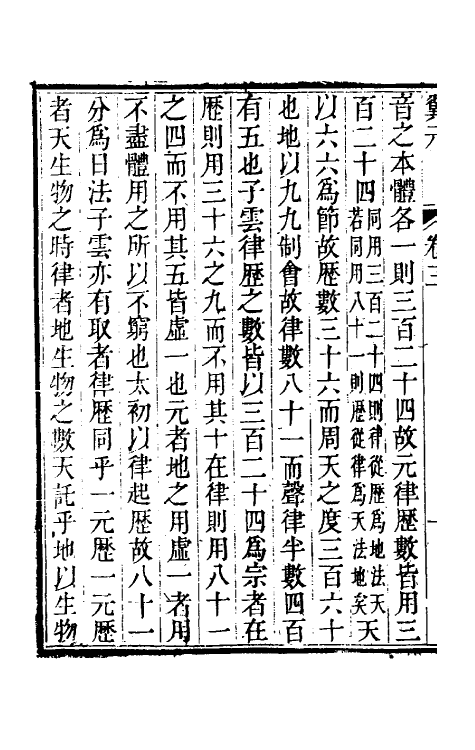 翼元 卷三
音之本體各一則三百二十四故元律歷數皆用三
百二十四同用三百二十四則律從歷爲地法天若同用八十一則歷從律爲天法地矣天
以六六爲節故歷數三十六而周天之度三百六十
也地以九九制會故律數八十一而聲律半數四百
有五也子雲律歷之數皆以三百二十四爲宗者在
歷則用三十六之九而不用其十在律則用八十一
之四而不用其五皆虛一也元者地之用虛一者用
不盡體用之所以不窮也太初以律起歷故八十一
分爲日法子雲亦有取者律歷同乎一元歷一元歷
者天生物之時律者地生物之數天託乎地以生物